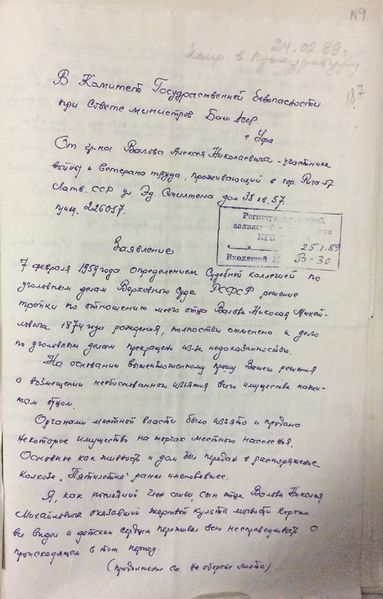 N9
24.02.89г.
напр. в Прокуратуру
187
В Комитет Государственной Безопасности
при Совете министров Баш АССР
г. Уфа
От гр-на Валова Алексея Николаевича - участника
войны и ветерана труда, проживающий в гор. Рига-57
Латв. ССР ул Эд. Смилтена дом 38 кв. 57.
инд. 226057.
25 1.89
Входящий № В-30
Заявление
7 февраля 1959 года определением Судебной коллегией по
уголовным делам Верховного Суда РСФСР решение
тройки по отношению моего отца Валова Николая Михай-
ловича 1874 года рождения, полностью отменено и дело
по уголовным делам прекращено из-за недоказанностью.
На основании вышеизложенному прошу Вашего решения
о возмещении необоснованного изъятия всего имущества
отцом.
Органами местной власти было изъято и продано
некоторое имущество на торгах местного населения.
Основное как живность и дом был передан в распоряжение
колхоза "Пятилетка" ранее именовавшее.
Я, как последний член семьи, сын отца Валова Николая
Михайловича оказавший жертвой культа личности хорошо
все видел и детским сердцем переживал всю несправедливость о
происходящем в тот период
(продолжение см на обороте листа)